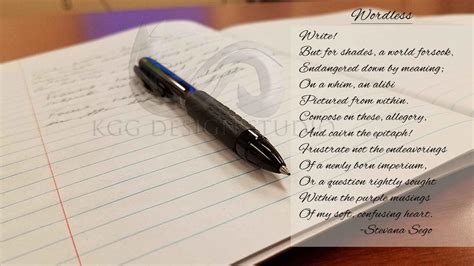 Wordless
Write!
But for shades, a world forsook,
Endangered down by meaning;
On a whim, an alibi
Pictured from within.
Compose on these, allegory,
And cairn the epitaph!
Frustrate not the endeavorings
Of a newly born imperium,
Or a question rightly sought
Within the purple musings
Of my soft, confusing heart.
-Stevana Sego
KGG DESIGN STUDIO